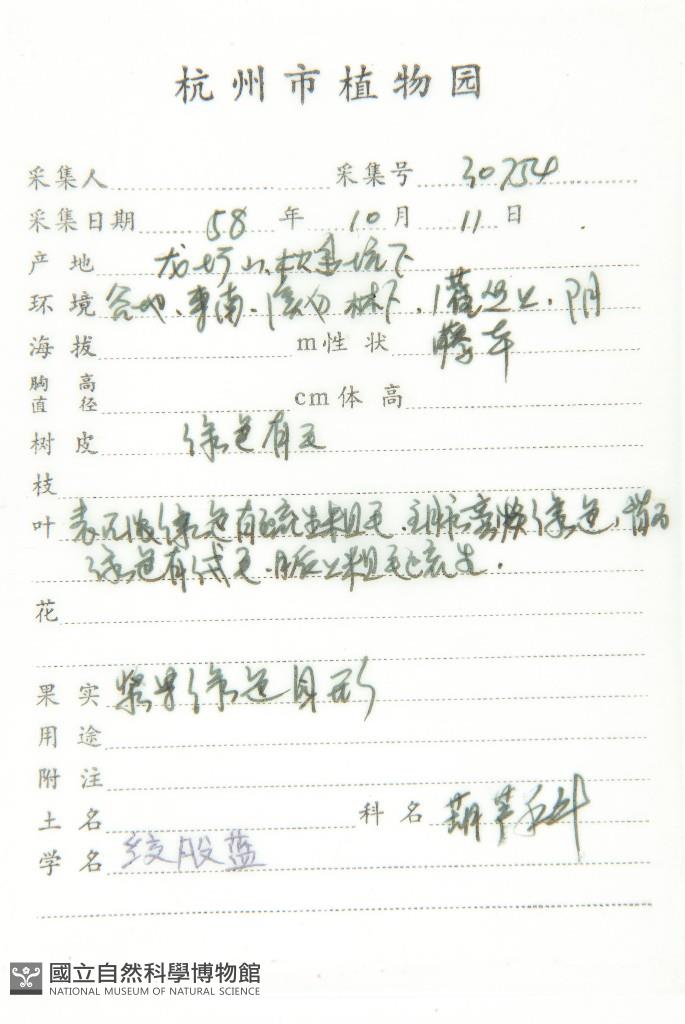 杭州市植物园
采集人 采集号 30754
采集日期 58 年 10 月 11 日
产地 龙
环境 谷地、东南、林下、灌丛上、阴
海拔 m性状 藤本
胸高直径 cm体高
树皮 绿色有毛
枝
叶 绿色有疏生粗毛、主脉 绿色,背面
绿色有 毛、脉上粗毛疏生.
花
果实 浆果绿色 形
用途
附注
土名 科名 葫芦科
学名 绞股蓝
國立自然科學博物館
NATIONAL MUSEUM OF NATURAL SCIENCE